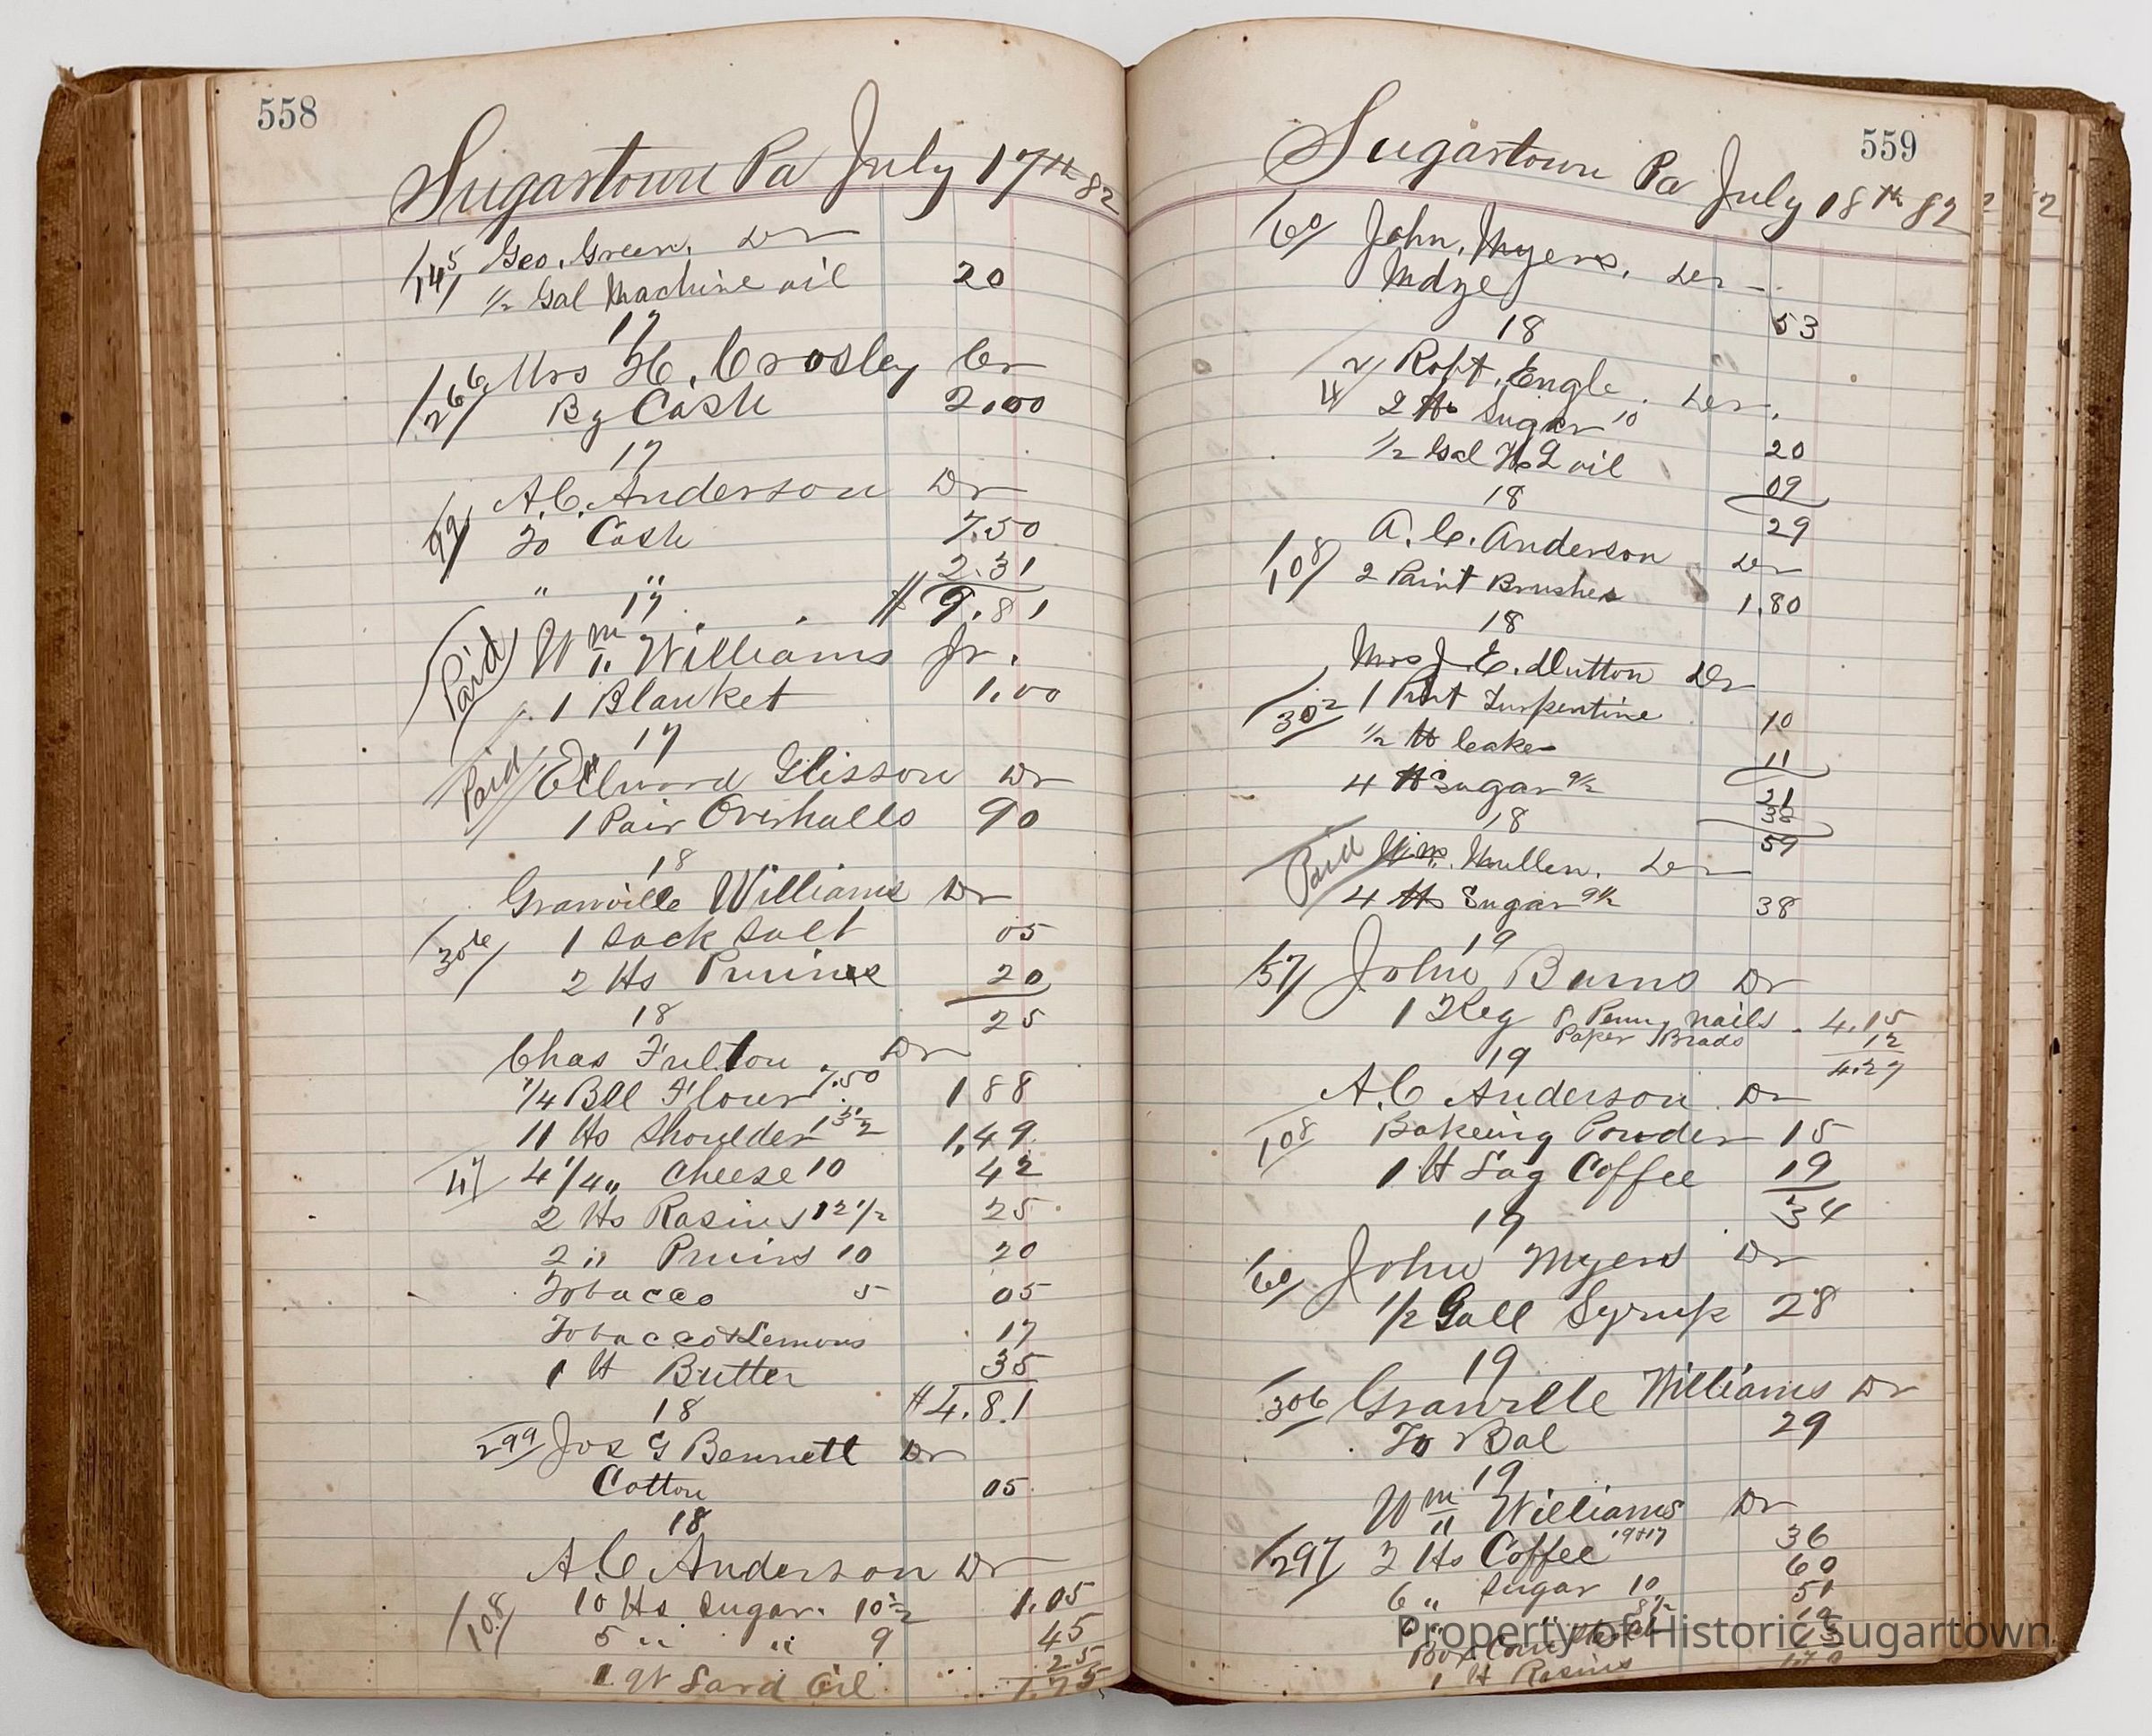 558
Sugartown Pa July 17th 82
145 Geo. Green. Dr
1/2 Gal Machine oil 20
17
266 Mrs H. Crosley Cr
By Cash 2.00
17
92 A.C. Anderson Dr
To Cash 7.50
" " 2.31
17 $9.81
Paid Wm Williams Jr.
1 Blanket 1.00
17
Paid Edward Glisson Dr
1 Pair Overhalls 90
18
Granville Williams Dr
306 1 sack salt 05
2 lbs Pruines 20
18 25
Chas Fulton Dr
1/4 Bll Flour 7.50 1 88
11 lbs Shoulder 13 1/2 1.49
4 1/4 " Cheese 10 42
2 lbs Rasins 12 1/2 25
2 " Pruins 10 20
Tobacco 5 05
Tobacco & Lemons 17
1 lb Butter 35
18 $4.81
299 Jos G Bennett Dr
Cotton 05
18
A.C Anderson Dr
108 10 lbs Sugar. 10 1/2 1.05
5 " " 9 45
1 qt Lard Oil 25
1.75
559
Sugartown Pa July 18th 82
60 John. Myers. Dr
Mdze 53
18
Robt. Engle. Dr.
2 lb Sugar 10 20
1/2 Gal oil 09
18 29
A. C. Anderson Dr
108 2 Paint Brushes 1.80
18
Mrs J. E. Dutton Dr
302 1 Pint Turpentine 10
1/2 lb Cakes 11
4 lb Sugar 9 1/2 21
18 38
59
Paid Wm. Mullen. Dr
4 lbs Sugar 9 1/2 38
19
57 John Burns Dr
1 Keg 8 Penny nails 4.15
Paper Brads 12
19 4.27
A.C Anderson Dr
108 Bakeing Powder 15
1 lb Lag Coffee 19
19 34
60 John Myers Dr
1/2 Gall Syrup 28
19
306 Granville Williams Dr
To Bal 29
19
Wm Williams Dr
297 2 lbs Coffee 19+17 36
6 " Sugar 10 60
6 " " 8 1/2 51
Box
1 lb Rasins
Property of Historic Sugartown